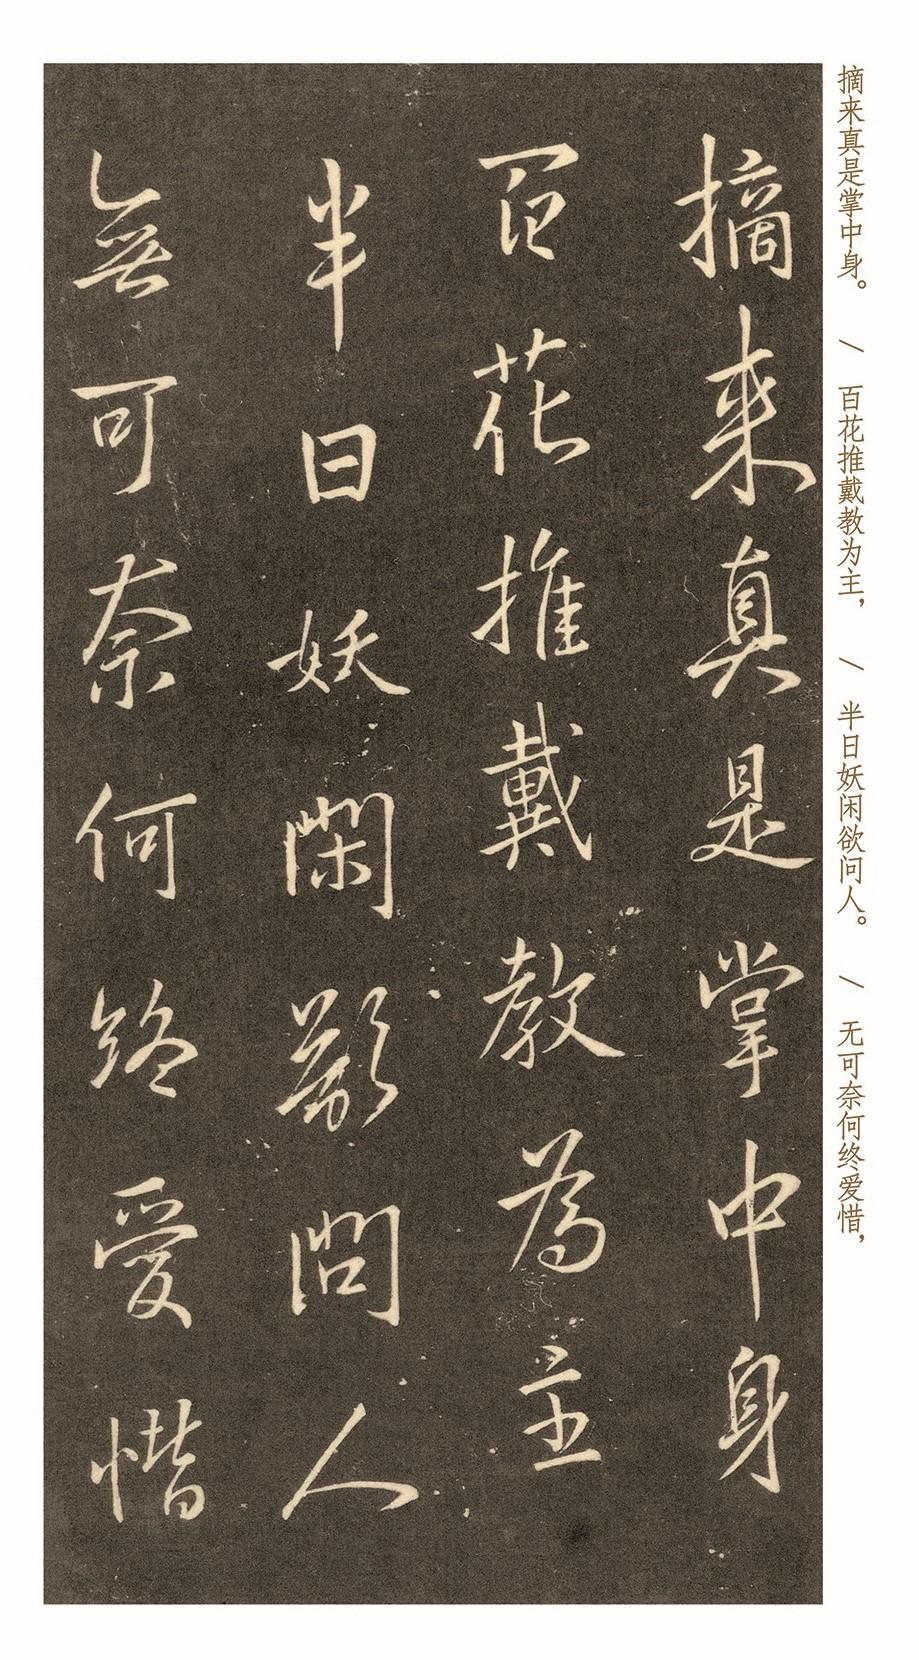 摘来真是掌中身。 / 百花推戴教为主， / 半日妖闲欲问人。 / 无可奈何终爱惜，
摘来真是掌中身
百花推戴教為主
半日妖閑欲問人
無可奈何終愛惜